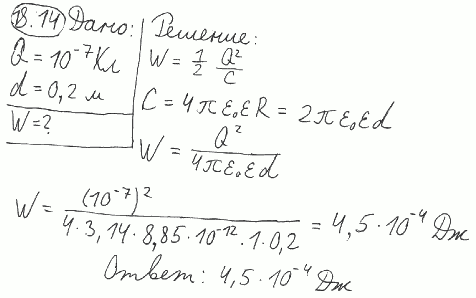 18.14 Дано:
Q = 10⁻⁷ Кл
d = 0,2 м
W = ?
Решение:
W = 1/2 Q²/C
C = 4πε₀εR = 2πε₀εd
W = Q²/4πε₀εd
W = (10⁻⁷)²/4·3,14·8,85·10⁻¹²·1·0,2 = 4,5·10⁻⁴ Дж
Ответ: 4,5·10⁻⁴ Дж